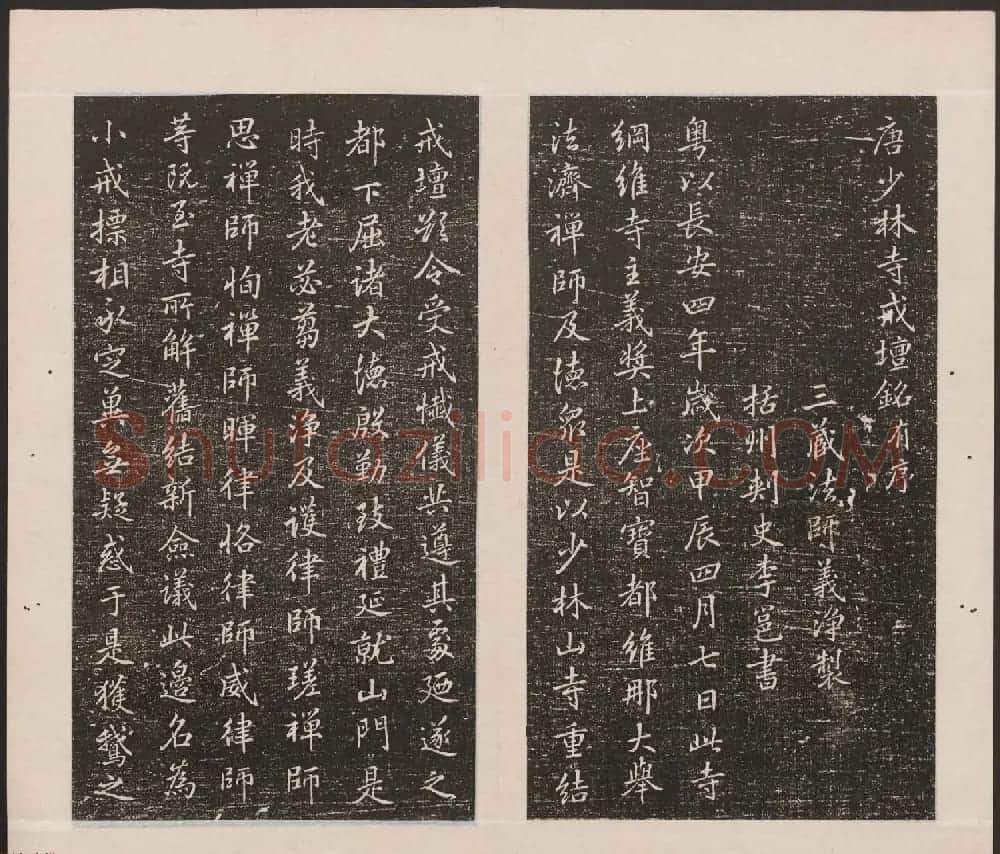 唐少林寺戒壇銘有序
三藏法師義淨製
括州刺史李邕書
粤以長安四年歲次甲辰四月七日此寺
綱維寺主義獎上座智寶都維那大舉
法濟禪師及徳眾是以少林山寺重結
戒壇欲令受戒懺儀共遵其處迺遂之
都下屈諸大徳殷勤致禮延就山門是
時我老苾蒭義淨及護律師瑳禪師
思禪師恂禪師暉律恪律師威律師
等既至寺所解舊結新僉議此邊名為
小戒標相永定兼無疑惑于是獲鵝之
Shufazilico.COM